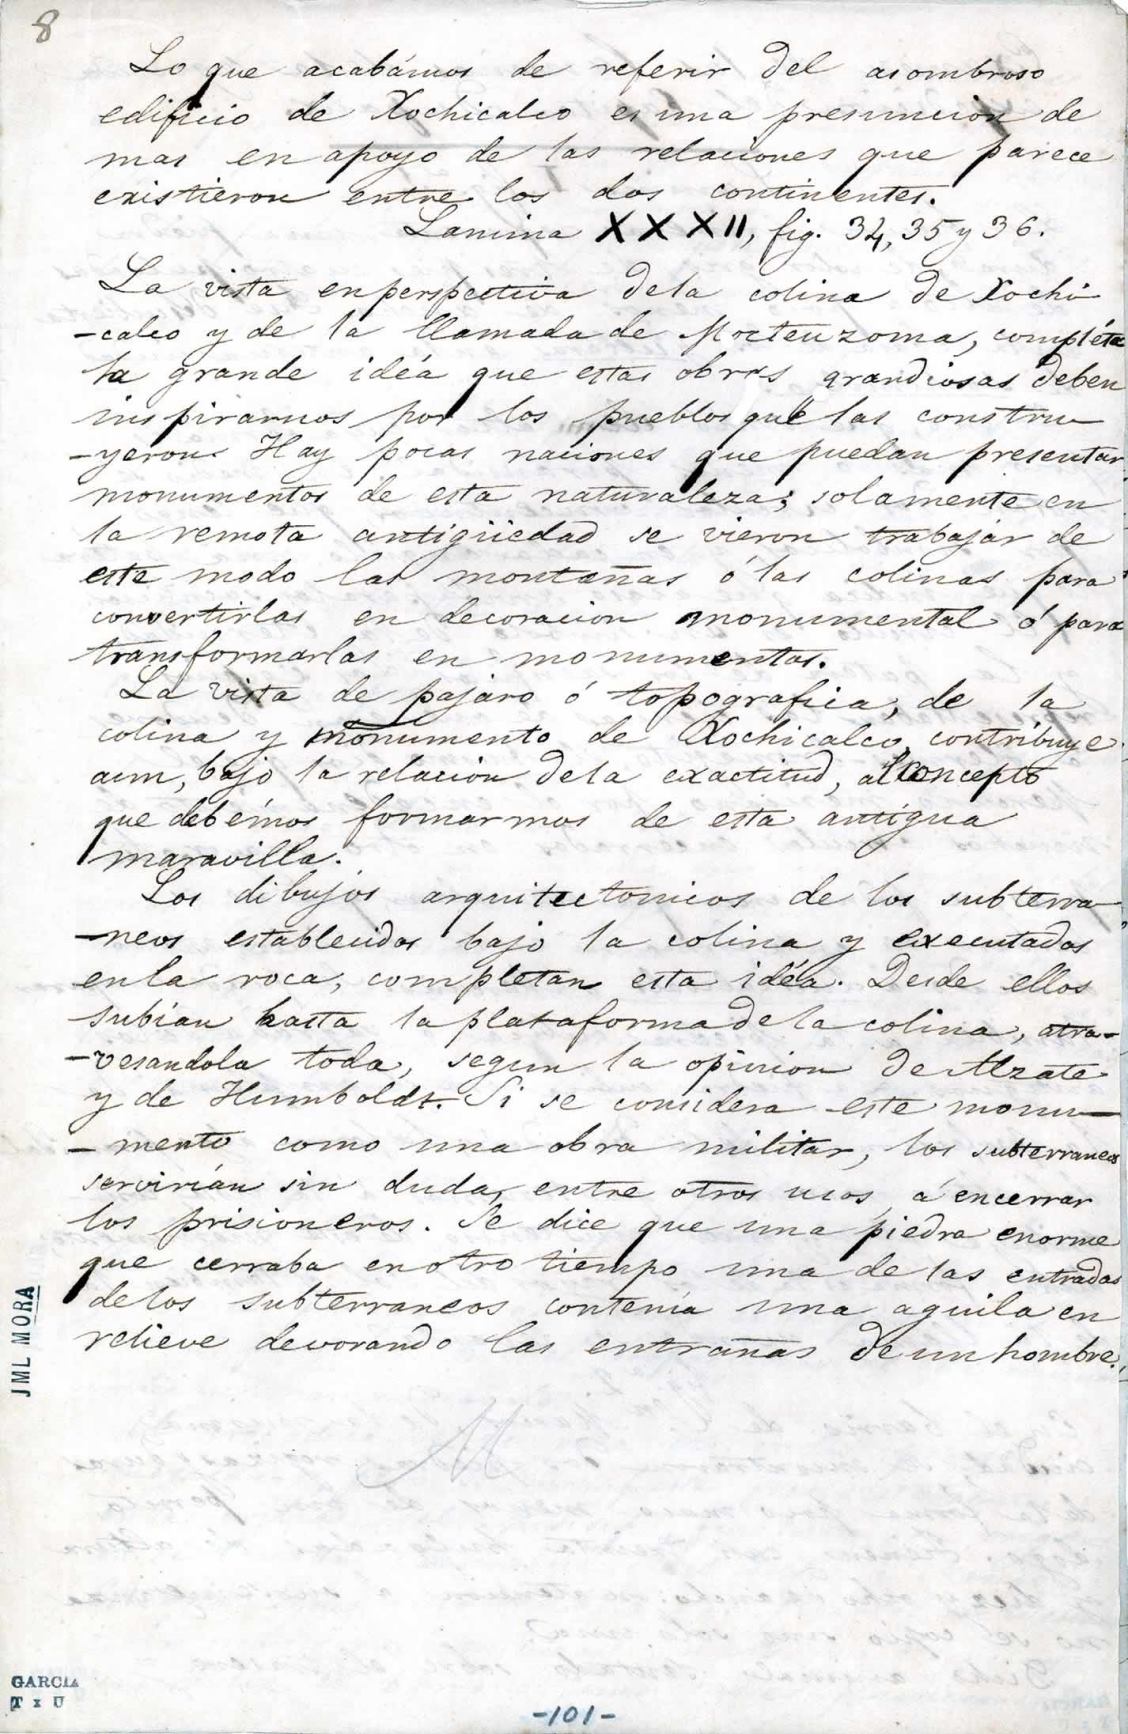 8
Lo que acabámos de referir del asombroso
edificio de Xochicalco es una presuncion de
mas en apoyo de las relaciones que parece
existieron entre los dos continentes.
Lamina XXXII, fig. 34, 35 y 36.
La vista en perspectiva de la colina de Xochi
-calco y de la llamada de Mocteuzoma, compléta
la grande idéa que estas obras grandiosas deben
inspirarnos por los pueblos que las constru
-yeron. Hay pocas naciones que puedan presentar
monumentos de esta naturaleza; solamente en
la remota antigüedad se vieron trabajar de
este modo las montañas ó las colinas para
convertirlas en decoracion monumental ó para
transformarlas en monumentos.
La vista de pajaro ó topografica, de la
colina y monumento de Xochicalco, contribuye
aun, bajo la relacion de la exactitud, al concepto
que debémos formarmos de esta antigua
maravilla.
Los dibujos arquitectonicos de los subterra
-neos establecidos bajo la colina y executados
en la roca, completan esta idéa. Desde ellos
subian hasta la plataforma de la colina, atra-
-vesandola toda, segun la opinion de Alzate
y de Humboldt. Si se considera este monu-
-mento como una obra militar, los subterraneos
servirián sin duda, entre otros usos, á encerrar
los prisioneros. Se dice que una piedra enorme
que cerraba en otro tiempo una de las entradas
de los subterraneos contenia una aguila en
relieve devorando las entrañas de un hombre.
JML MORA
GARCIA
T x U
-101-